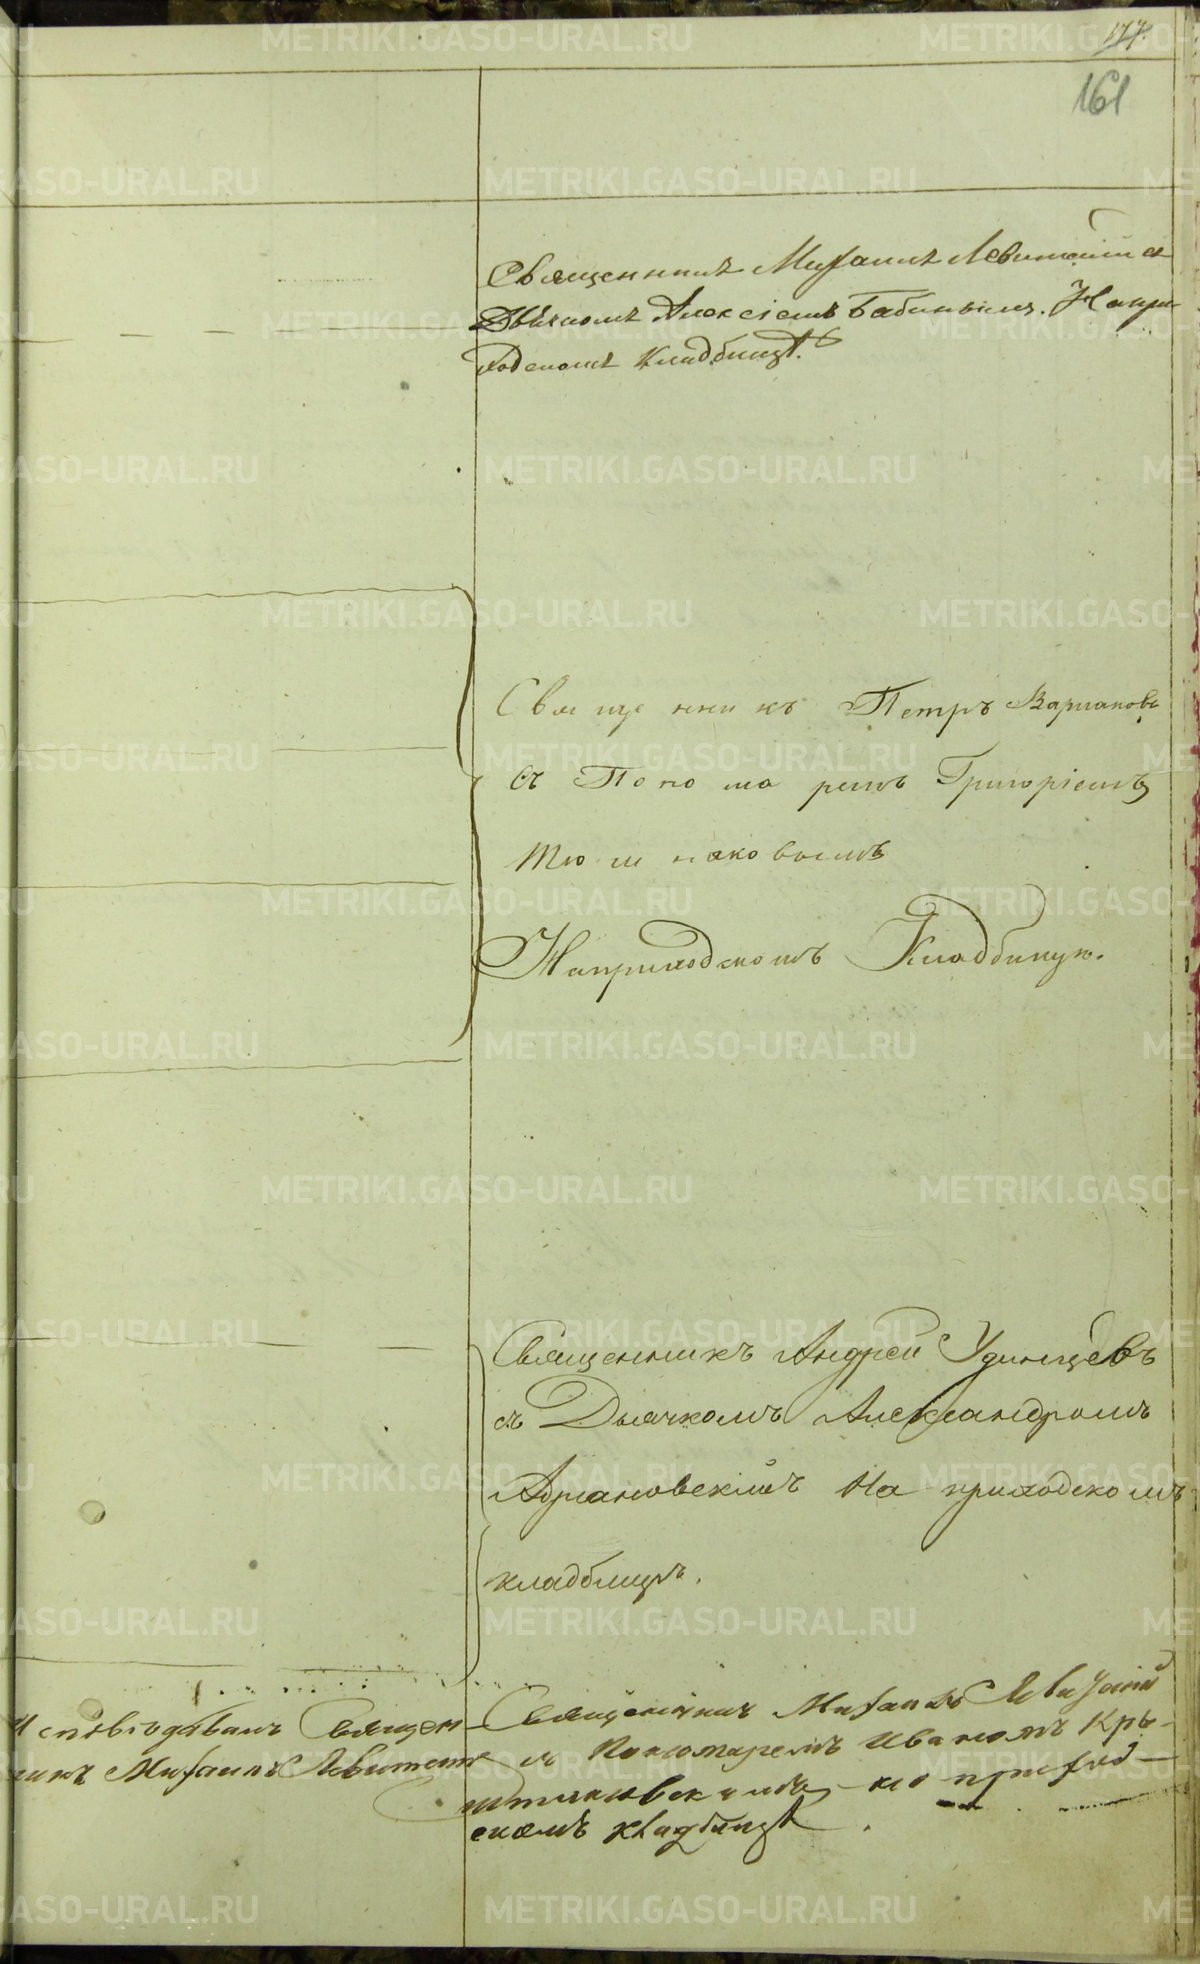 177.
161
Священникъ Михаилъ Левитскій съ
Дьячкомъ Алексіемъ Бабинымъ. На при-
ходскомъ Кладбищѣ.
Священникъ Петръ Вармаковъ
съ Пономаремъ Григоріемъ
На приходскомъ Кладбищѣ.
Священникъ Андрей Удинцевъ
съ Дьячкомъ Александромъ
Адріановскимъ На приходскомъ
кладбищѣ.
Исповѣдывалъ Священ-
никъ Михаилъ Левитскій
Священникъ Михаилъ Левитскій
съ Пономаремъ Иваномъ
на приход-
скомъ кладбищѣ.
METRIKI.GASO-URAL.RU